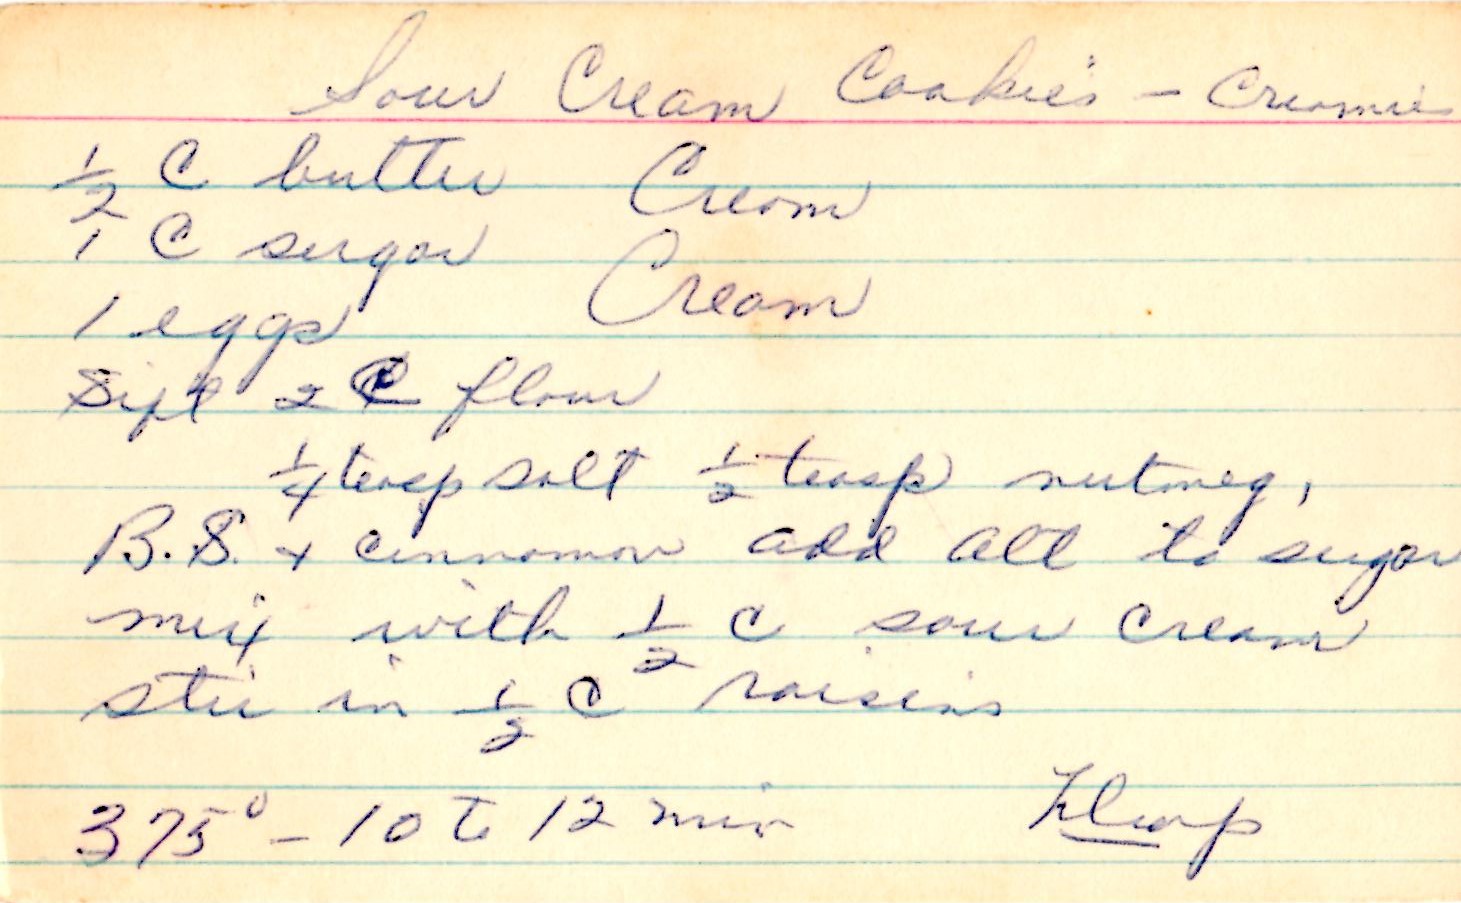 Sour Cream Cookies - Creamie
1/2 C butter Cream
1 C sugar
1 eggs Cream
Sift 2 C flour
1/4 teasp salt 1/2 teasp nutmeg,
B.S. + cinnamon add all to sugar
mix with 1/2 C sour cream
stir in 1/2 C raisins
375° - 10 to 12 min